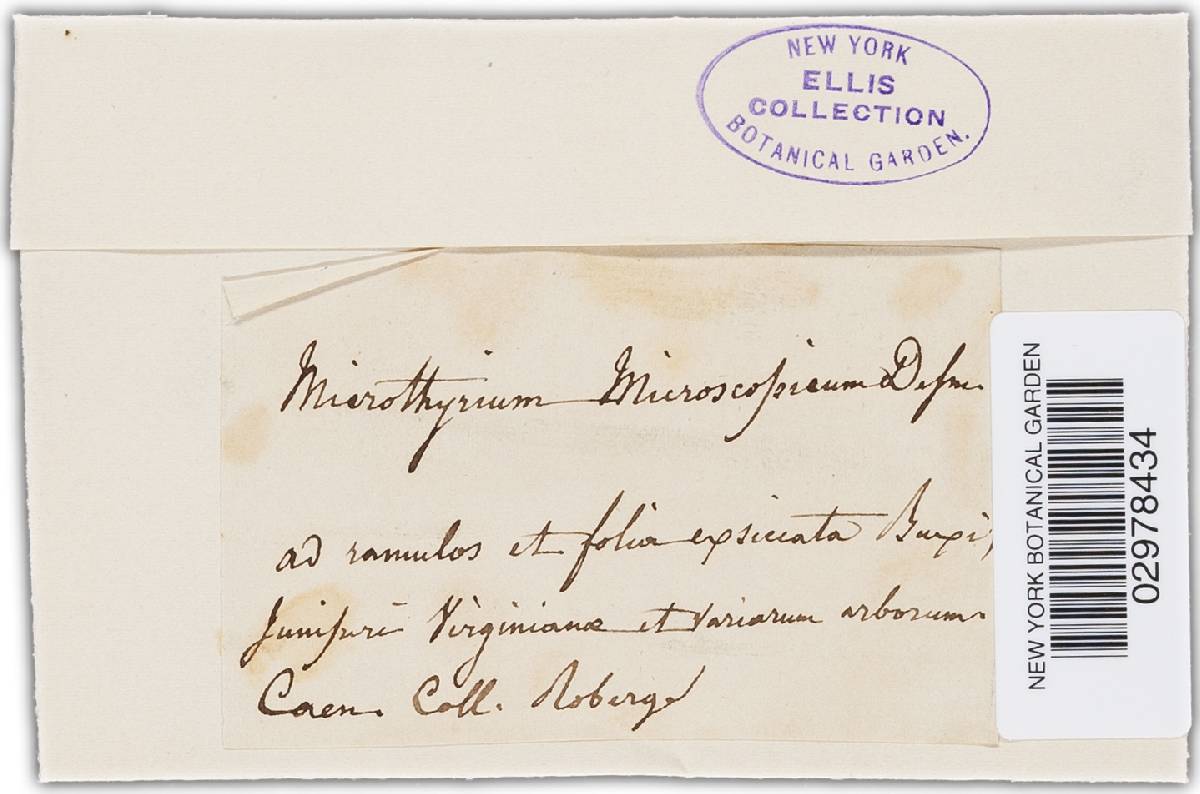 NEW YORK
ELLIS
COLLECTION
BOTANICAL GARDEN.
Microthyrium Microscopicum Desm.
ad ramulos et folia exsiccata Buxi,
Juniperi Virginianæ et variarum arborum.
Caen. Coll. Roberge
NEW YORK BOTANICAL GARDEN
02978434